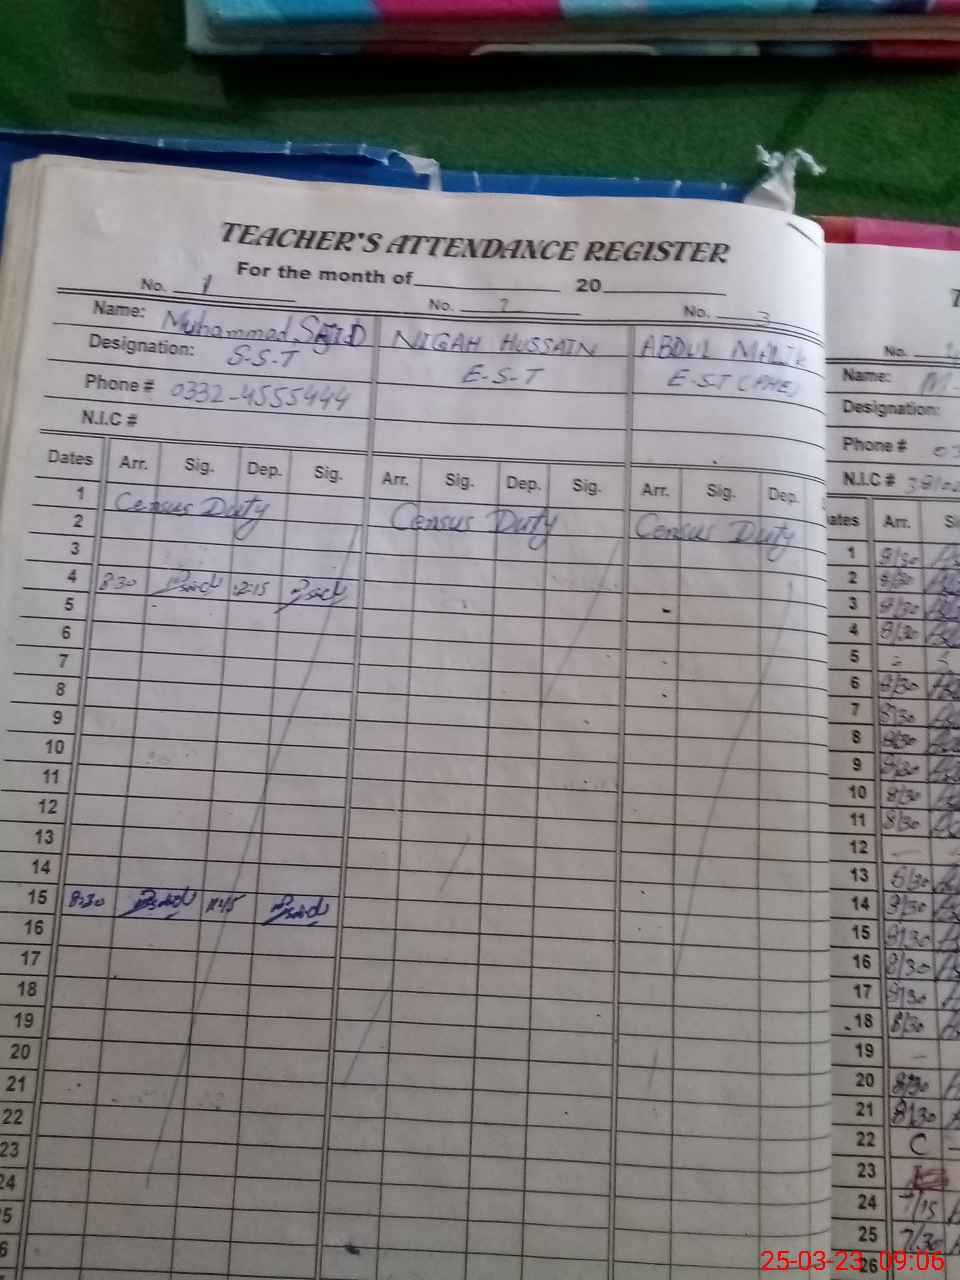 TEACHER'S ATTENDANCE REGISTER
For the month of 20
No. 1 No. 2 No. 3
Name: Muhammad SAJID NIGAH HUSSAIN ABDUL MALIK
Designation: S-S-T E-S-T E-S-T (PHE)
Phone # 0332-4555444
N.I.C #
Dates Arr. Sig. Dep. Sig. Arr. Sig. Dep. Sig. Arr. Sig. Dep.
1 Census Duty Census Duty Census Duty
2
3
4 8:30 12:15
5
6
7
8
9
10
11
12
13
14
15 8:30 11:45
16
17
18
19
20
21
22
23
24
5
6
No.
Name: M
Designation:
Phone # 03
N.I.C #
ates Arr.
1 8/30
2 8/30
3 8/30
4 8/30
5
6 8/30
7 8/30
8 8/30
9 8/30
10 8/30
11 8/30
12
13 8/30
14 8/30
15 8/30
16 8/30
17 8/30
18 8/30
19
20 8/30
21 8/30
22 C
23
24 7/15
25 7/30
26
25-03-23 09:06